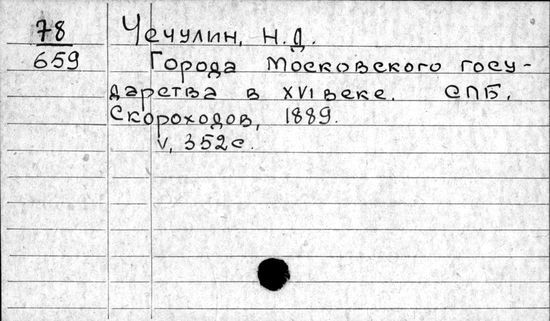 78 Чечулин, Н.Д.
659 Города Московского госу-
дарства в XVI веке. СПБ,
Скороходов, 1889.
V, 352с.